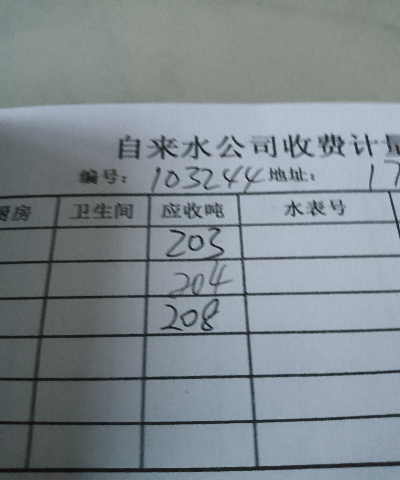 自来水公司收费计量
编号: 103244 地址: 17
厨房 卫生间 应收吨 水表号
203
204
208